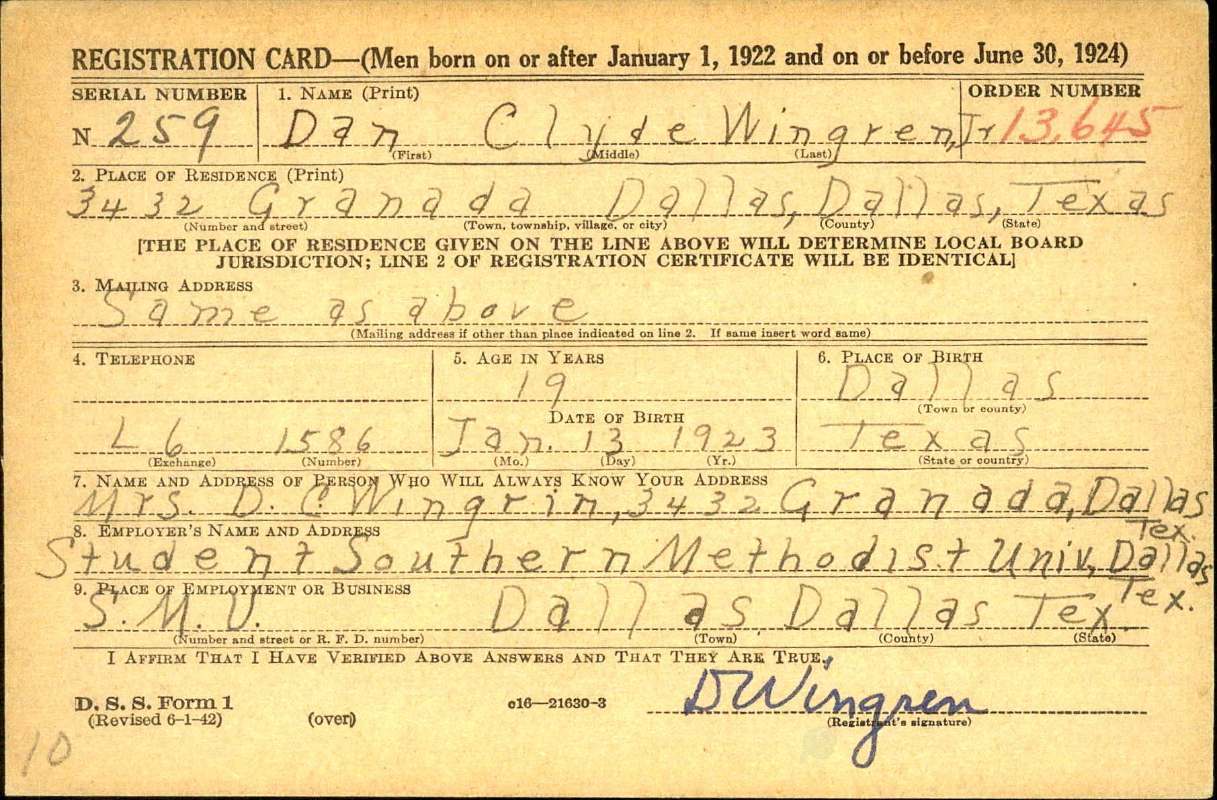 REGISTRATION CARD—(Men born on or after January 1, 1922 and on or before June 30, 1924)
SERIAL NUMBER 1. NAME (Print) ORDER NUMBER
N 259 Dan Clyde Wingren, Jr 13,645
(First) (Middle) (Last)
2. PLACE OF RESIDENCE (Print)
3432 Granada Dallas, Dallas, Texas
(Number and street) (Town, township, village, or city) (County) (State)
[THE PLACE OF RESIDENCE GIVEN ON THE LINE ABOVE WILL DETERMINE LOCAL BOARD
JURISDICTION; LINE 2 OF REGISTRATION CERTIFICATE WILL BE IDENTICAL]
3. MAILING ADDRESS
Same as above
(Mailing address if other than place indicated on line 2. If same insert word same)
4. TELEPHONE 5. AGE IN YEARS 6. PLACE OF BIRTH
19 Dallas
DATE OF BIRTH (Town or county)
L6 1586 Jan. 13 1923 Texas
(Exchange) (Number) (Mo.) (Day) (Yr.) (State or country)
7. NAME AND ADDRESS OF PERSON WHO WILL ALWAYS KNOW YOUR ADDRESS
Mrs. D. C. Wingrin, 3432 Granada, Dallas
Tex.
8. EMPLOYER'S NAME AND ADDRESS
Student Southern Methodist Univ, Dallas
Tex.
9. PLACE OF EMPLOYMENT OR BUSINESS
S. M. U. Dallas Dallas Tex.
(Number and street or R. F. D. number) (Town) (County) (State)
I AFFIRM THAT I HAVE VERIFIED ABOVE ANSWERS AND THAT THEY ARE TRUE.
D. S. S. Form 1 c16—21630-3 DWingren
(Revised 6-1-42) (over) (Registrant's signature)
10